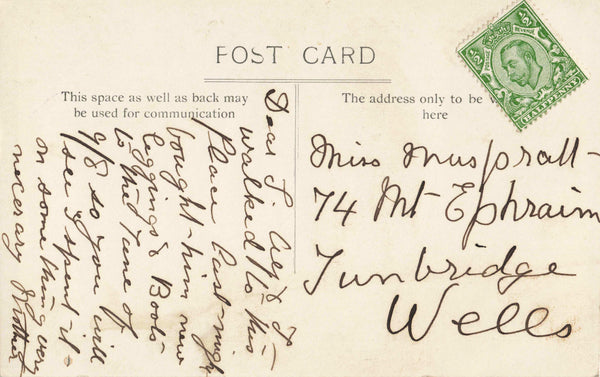 POST CARD
This space as well as back may
be used for communication
The address only to be
here
POSTAGE REVENUE
½D ½D
HALFPENNY
Dear S. Cely & I
walked to this
place last night
bought him new
leggings & Boots
to the Tune of
9/8 so you will
see I spent it
on something very
necerary
Miss Muspratt
74 Mt Ephraim
Tunbridge
Wells